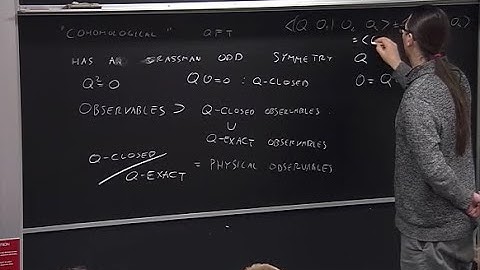 "COHOMOLOGICAL" QFT
HAS AN GRASSMAN ODD SYMMETRY Q
Q²=0 QO=0 : Q-CLOSED
OBSERVABLES > Q-CLOSED OBSERVABLES
∪
Q-EXACT OBSERVABLES
Q-CLOSED / Q-EXACT = PHYSICAL OBSERVABLES
O = Q